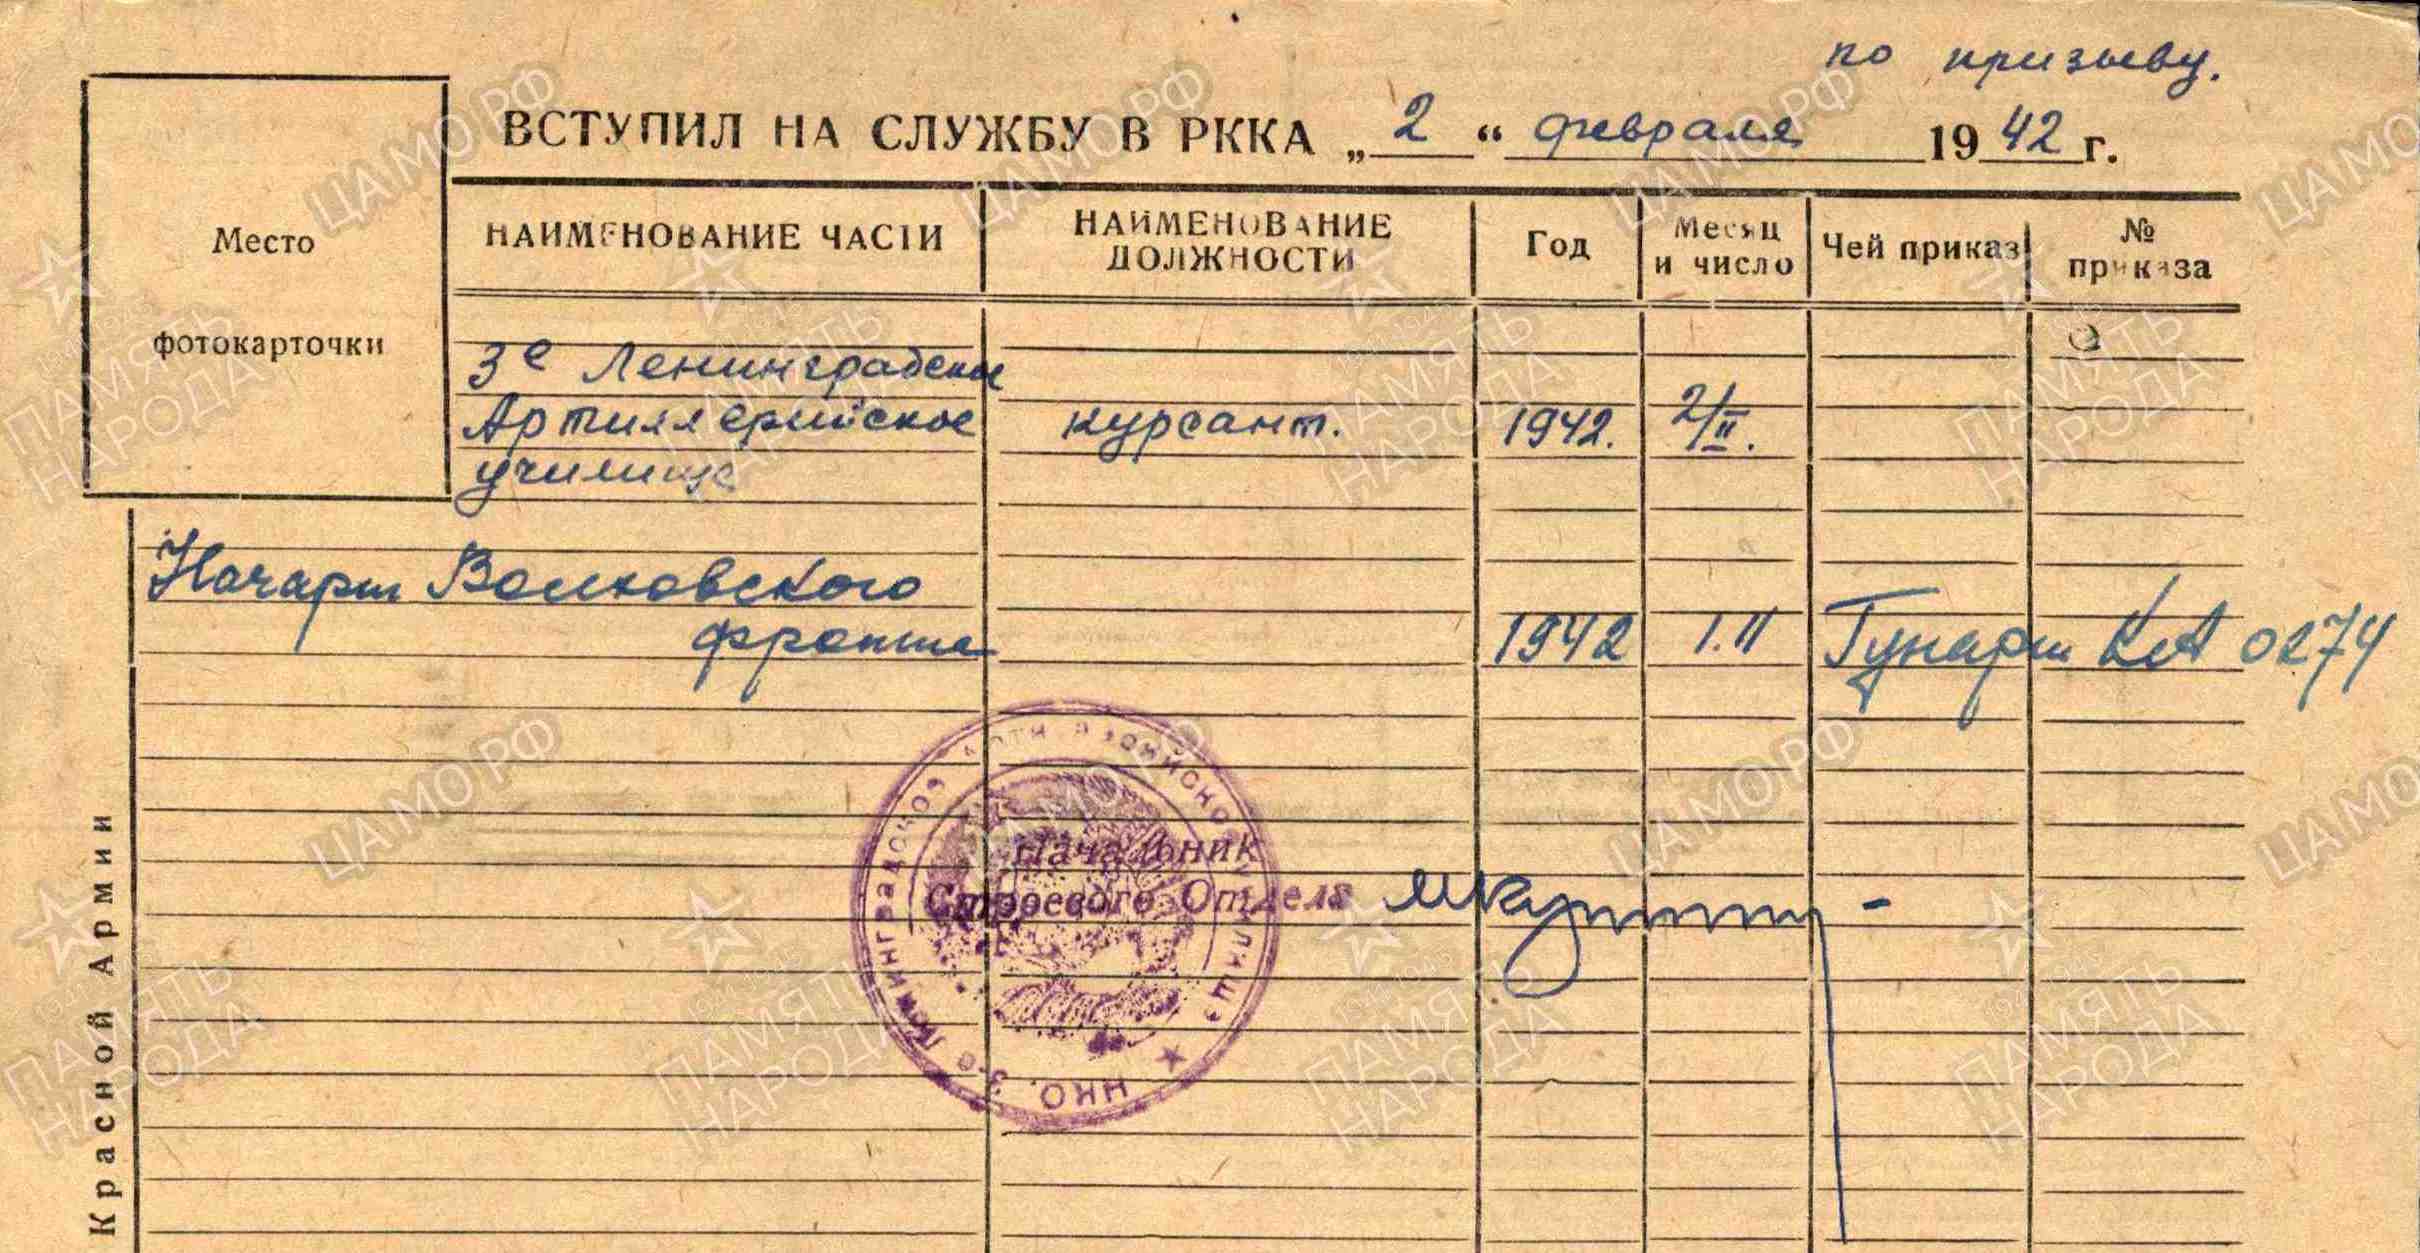 по призыву.
ВСТУПИЛ НА СЛУЖБУ В РККА „2“ февраля 1942 г.
Место
фотокарточки
НАИМЕНОВАНИЕ ЧАСТИ
НАИМЕНОВАНИЕ
ДОЛЖНОСТИ
Год
Месяц
и число
Чей приказ
№
приказа
3е Ленинградское
Артиллерийское курсант. 1942. 2/II.
училище
Начарт Волховского
фронта 1942 1.II Гунарт КА 0274
Начальник
Строевого Отдела
НКО. 3-е Ленинградское
Красной Армии
ЦАМО.РФ
ПАМЯТЬ
НАРОДА